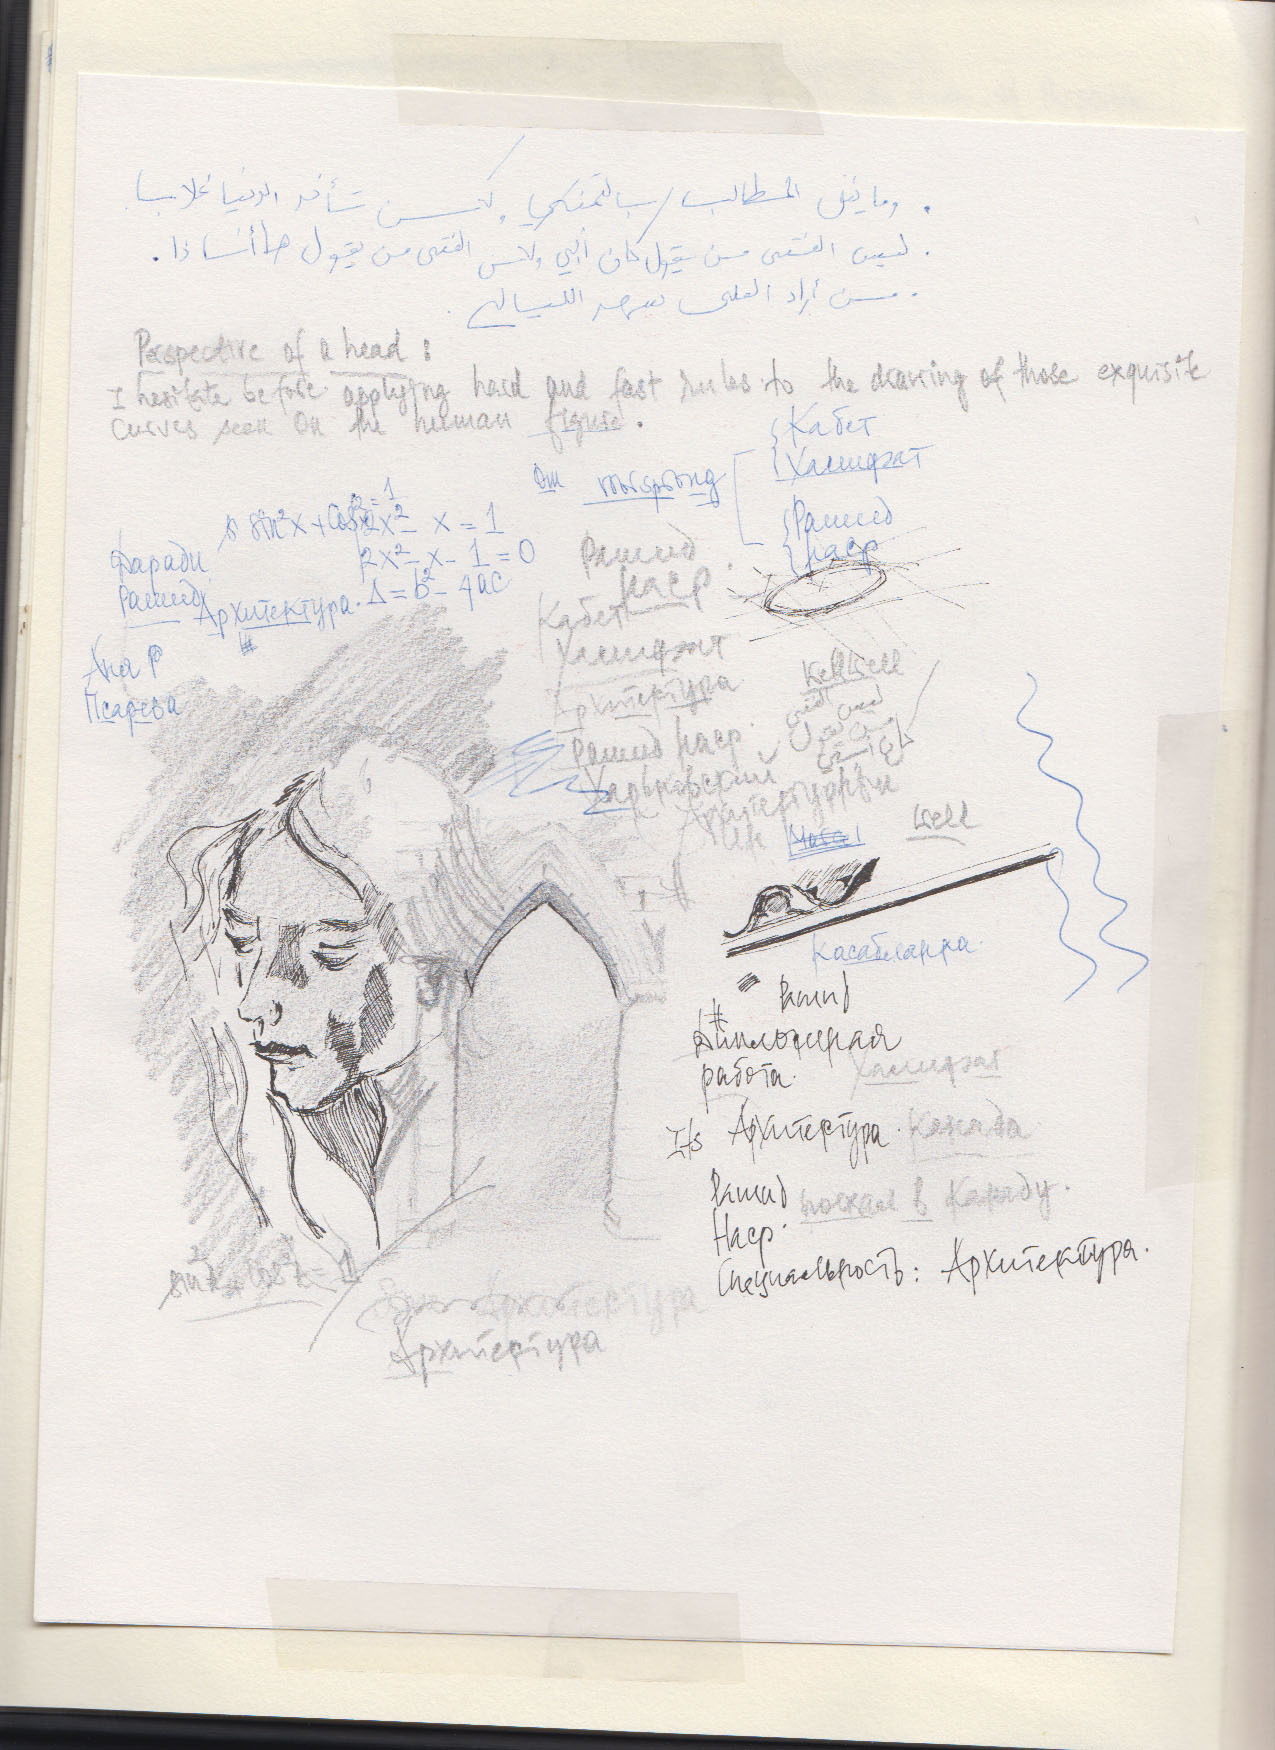 . وما نيل المطالب بالتمني ولكن تأخذ الدنيا غلابا
. ليس الفتى من يقول كان أبي ولاكن الفتى من يقول ها أنا ذا .
. من أراد العلى سهر الليالي .
Perspective of a head :
I hesitate before applying hard and fast rules to the drawing of those exquisite
curves seen on the human figure.
Кабет
Хамифат
vorsprung
Рашид
Наср
sin²x + cos²x = 1
2x² - x = 1
2x² - x - 1 = 0
Δ = b² - 4ac
Рашид
Архитектура.
Ана Р
Псарева
Рашид
Наср.
Кабет
Хамифат
Архитектура
Рашид Наср.
Харьковский
Well Well
ليس الفتى
من يقول
Well
Касабланка.
Рашид
Дипломная
работа.
Хамифат
Its Архитектура. Канада.
Рашид поехал в Канаду.
Наср.
Специальность: Архитектура.
sin²x + cos²x = 1
Архитектура
Архитектура